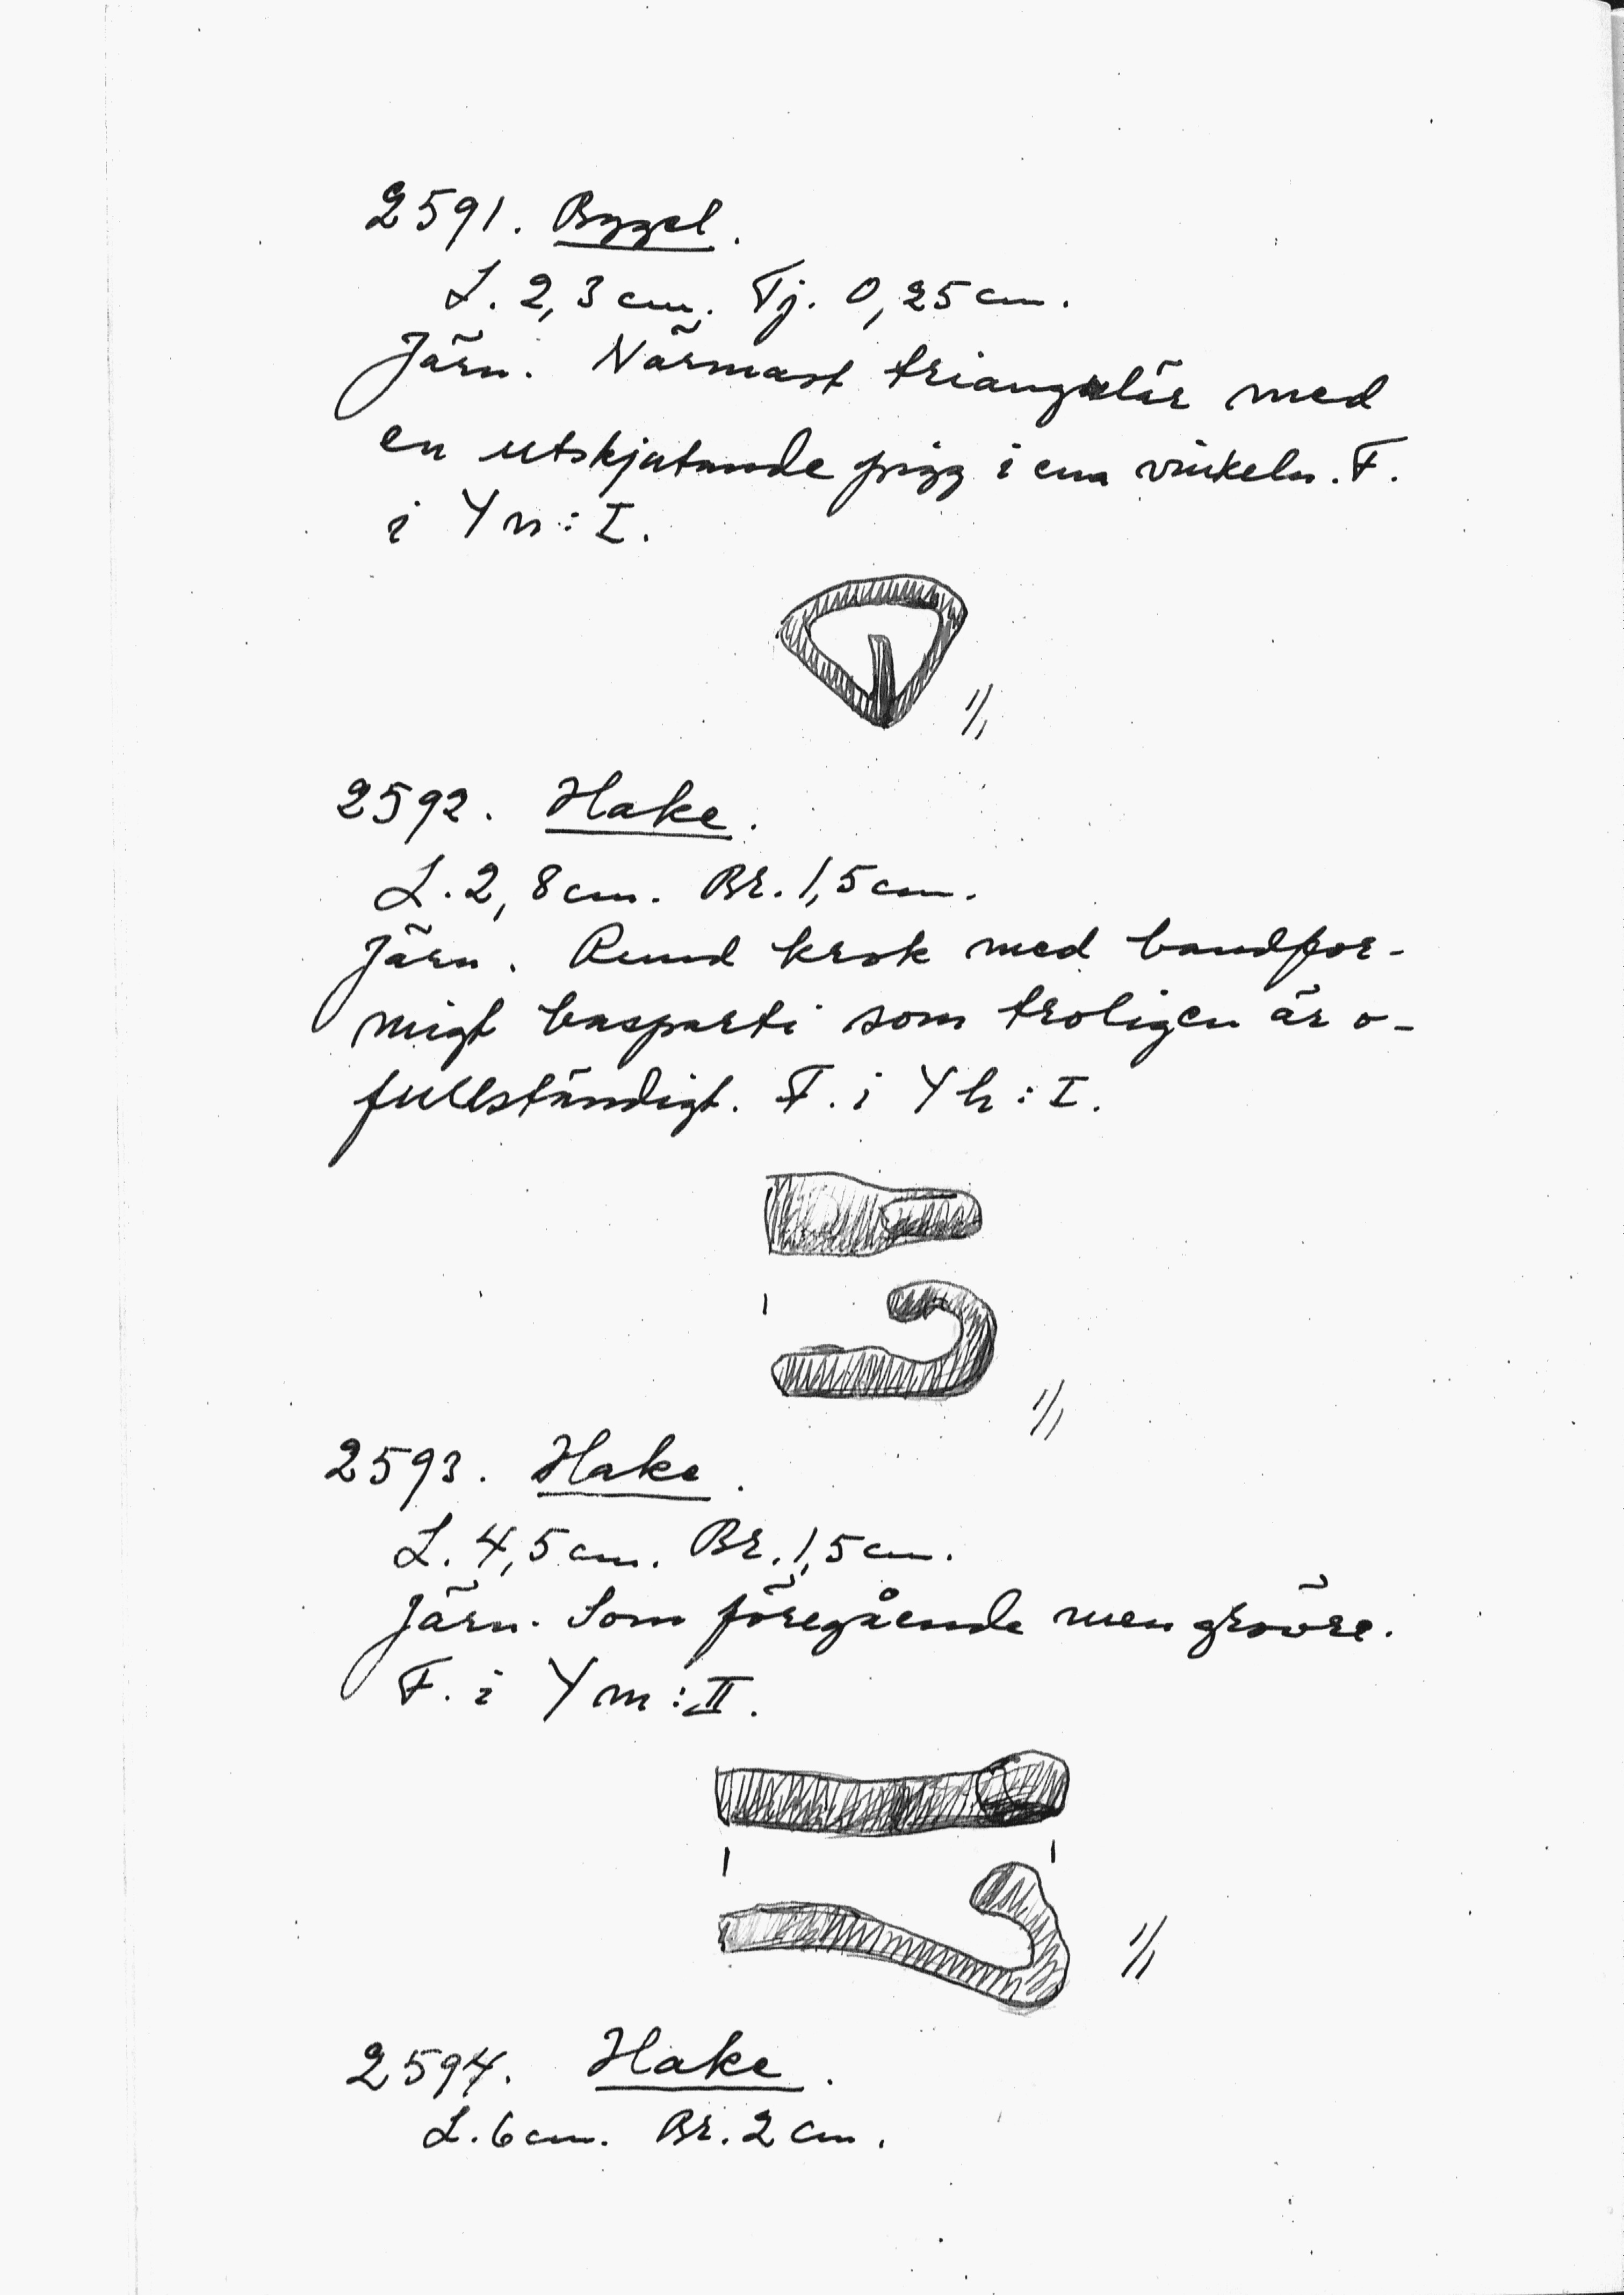 2591. Bygel.
L. 2,3 cm. Tj. 0,25 cm.
Järn. Närmast triangulär med
en utskjutande pigg i ena vinkeln. F.
i Yn:I.
1/1
2592. Hake.
L. 2,8 cm. Br. 1,5 cm.
Järn. Rund krok med bandfor-
migt basparti som troligen är o-
fullständigt. F. i Yh:I.
1/1
2593. Hake.
L. 4,5 cm. Br. 1,5 cm.
Järn. Som föregående men grövre.
F. i Ym:II.
1/1
2594. Hake.
L. 6 cm. Br. 2 cm.